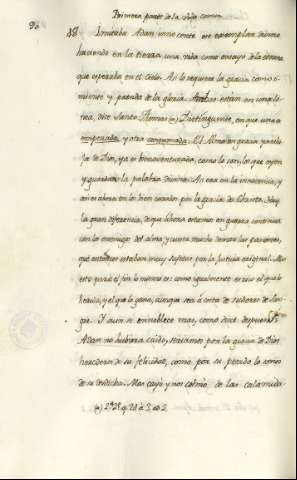 Primera parte de la vida comun
18 Imitaba Adan inocente en exemplar divino
haciendo en la tierra una vida como ensayo de la eterna
que esperaba en el Cielo. Asi lo requiere la gracia como si
miente y prenda de la gloria. Ambas estan en una li
nea, dice Santo Thomas (a) Distinguirse, en que una es
empezada, y otra consumada. El Alma en gracia ya es hi
ja de Dios, ya es bienaventurada, como lo son, los que oyen
y guardan la palabra divina. Asi era en la inocencia, y
asi es ahora en los bien casados por la gracia de Christo. Hay
la gran diferencia, de que ahora estamos en guerra continua
con los enemigos del alma, y cuesta mucho domar las pasiones,
que entonces estaban muy sujetas por la justicia original. Mas
esto para el fin lo mismo es: como igualmente es rico el que lo
hereda, y el que lo gana, aunque sea a costa de sudores de san
gre. Y aun se ennoblece mas, como diré despues. Si
Adan no hubiera caido, seriamos por la gracia de Dios
herederos de su felicidad, como por su pecado lo somos
de su desdicha. Mas cayó y nos colmó de las calamida
(a) 2ª 2ª q. 24 a 3 ad 2.